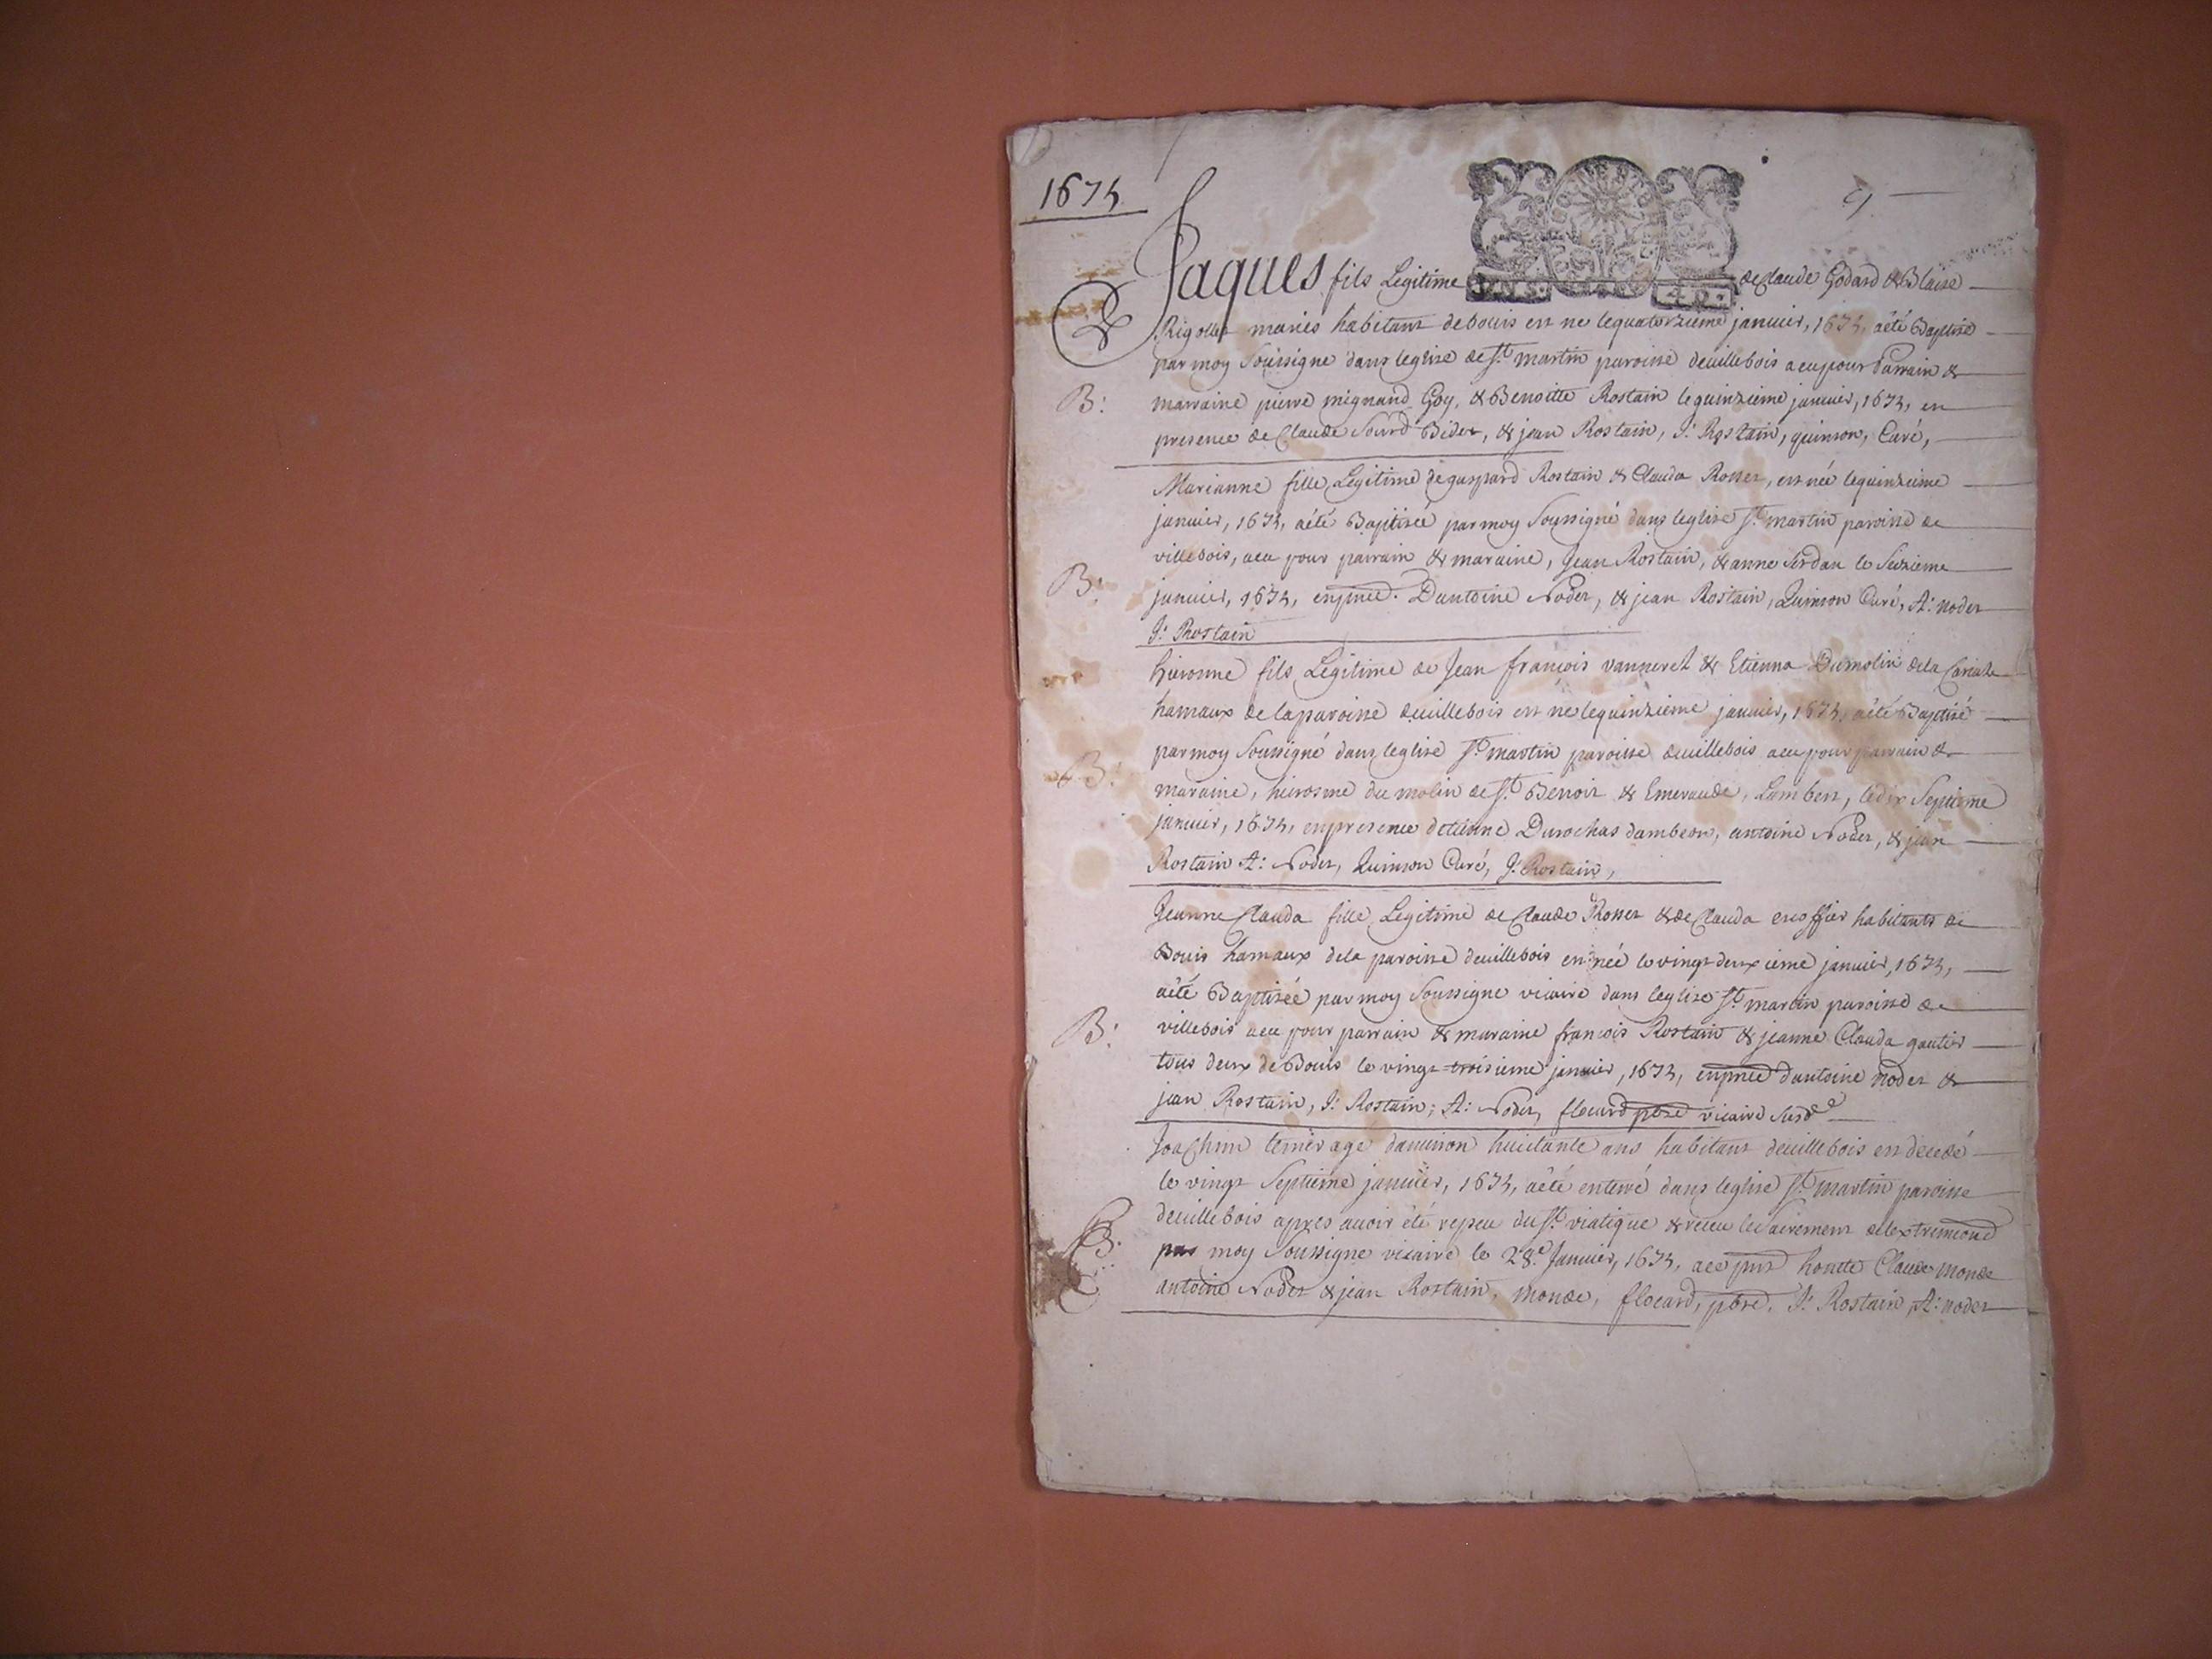 1674
Jaques fils Legitime de Claude Godard & Blaise
Rigollet mariés habitant debouis est ne lequatorzieme januier, 1674, aété Baptisé
par moy Soussigne dans leglise de St martin paroisse deuillebois a eu pour Parrain &
B: marraine pierre mignand Goy, & Benoitte Rostain lequinzieme januier, 1674, en
presence de Claude Sourd Bider, & jean Rostain, J: Rostain, quinson, Curé,
Marianne fille Legitime de gaspard Rostain & Clauda Rosset, est née lequinzieme
januier, 1674, aété Baptisée par moy Soussigné dans leglise St martin paroisse de
villebois, aeu pour parrain & maraine, Jean Rostain, & anne Serdan le Seizieme
B: januier, 1674, enpnce. Dantoine Nodet, & jean Rostain, Quinson Curé, A: nodet
J: Rostain
hierosme fils Legitime de Jean françois vanneret & Etienna Dumolin dela
hamaux de laparoisse deuillebois est ne lequinzieme januier, 1674, aété Baptisé
par moy Soussigné dans leglise St martin paroisse deuillebois aeu pour parrain &
B: maraine, hierosme du molin de St Benoit & Emeraude, Lambert, ledix Septieme
januier, 1674, enpresence detienne Durochas dambeon, antoine Nodet, & jean
Rostain A: Nodet, Quinson Curé, J: Rostain,
Jeanne Clauda fille Legitime de Claude Rosset & de Clauda habitants de
Bouis hamaux dela paroisse deuillebois est née le vingt deuxieme januier, 1674,
aété Baptisée par moy Soussigne vicaire dans leglise St martin paroisse de
B: villebois aeu pour parrain & maraine françois Rostain & jeanne Clauda gautier
tous deux de Bouis le vingt troisieme januier, 1674, enpnce dantoine nodet &
jean Rostain, J: Rostain; A: Nodet, flocard pbre vicaire
Joachim agé danuiron huictante ans habitant deuillebois est decedé
le vingt Septieme januier, 1674, aété enterré dans leglise St martin paroisse
deuillebois apres auoir été repeu du St viatique & receu le Sacrement delextremeond
par moy Soussigne vicaire le 28e Januier, 1674, honete Claude monde
antoine Nodet & jean Rostain, monde, flocard, pbre, J: Rostain, A: nodet